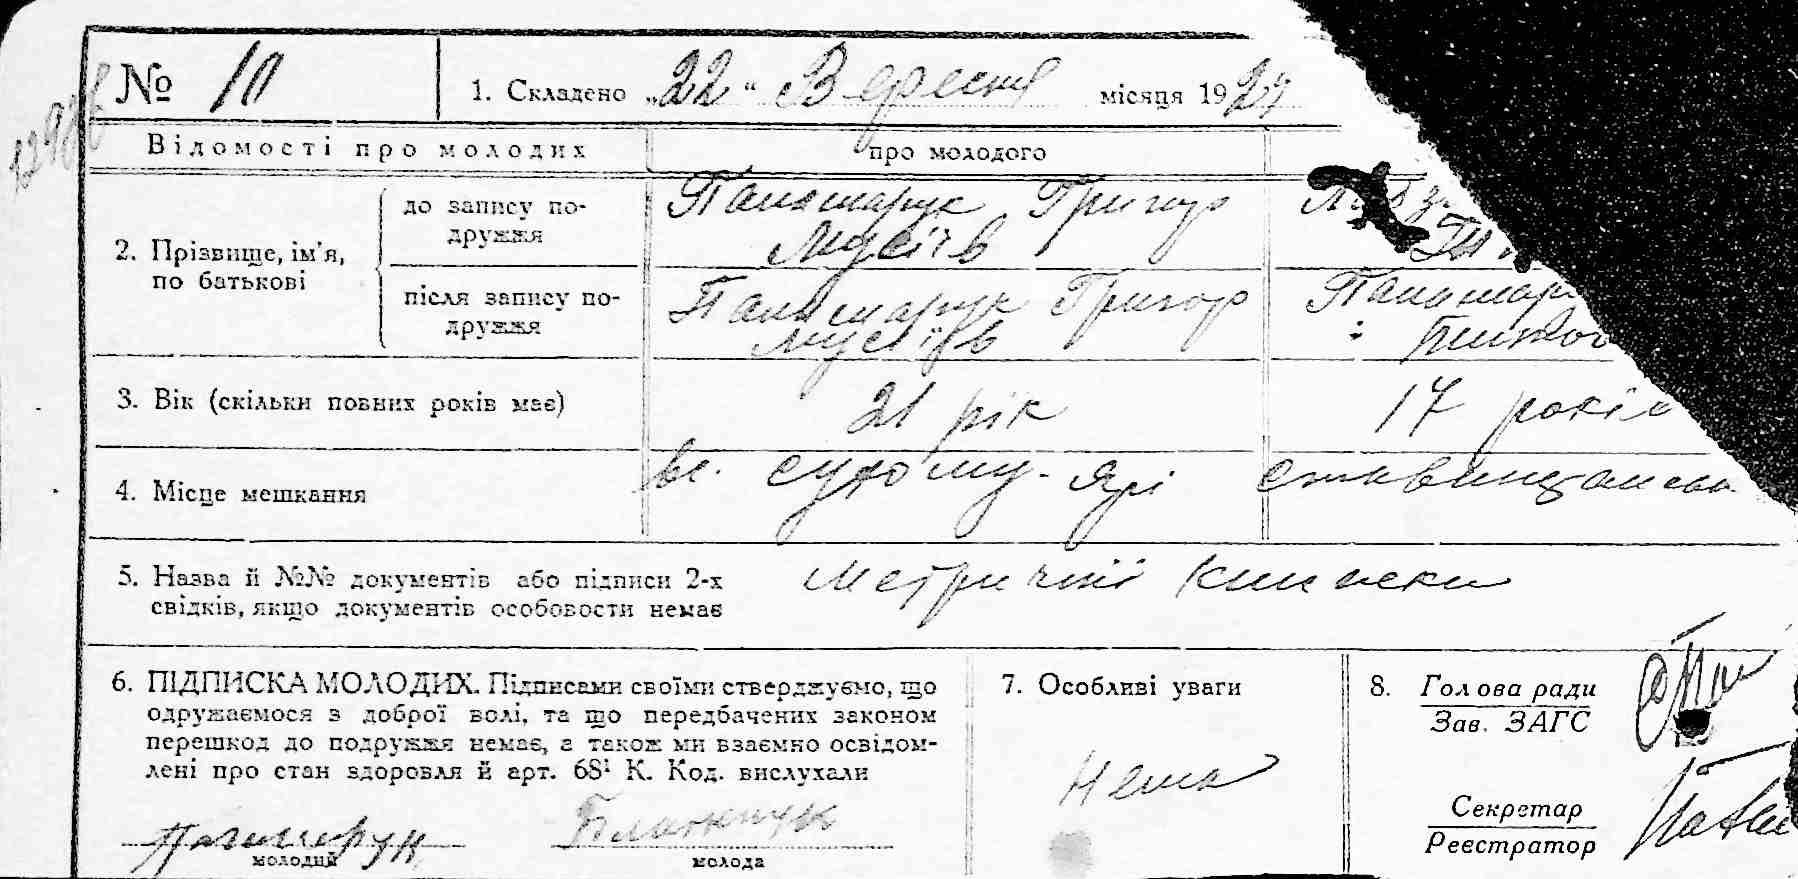 № 10 1. Складено „22“ Вересня місяця 1929
Відомості про молодих про молодого
2. Прізвище, ім'я, по батькові
до запису по-
дружжя
Паламарук Григор
Мусіїв
після запису по-
дружжя
Паламарук Григор Паламар
Мусіїв
3. Вік (скільки повних років має) 21 рік 17 років
4. Місце мешкання вс. Сухому-Ярі Ставищанськ
5. Назва й №№ документів або підписи 2-х
свідків, якщо документів особовости немає
Метричні Книжки
6. ПІДПИСКА МОЛОДИХ. Підписами своїми стверджуємо, що
одружаємося з доброї волі, та що передбачених законом
перешкод до подружжя немає, а також ми взаємно освідом-
лені про стан здоровля й арт. 68¹ К. Код. вислухали
молодий молода
7. Особливі уваги
Нема
8. Голова ради
Зав. ЗАГС
Секретар
Реєстратор